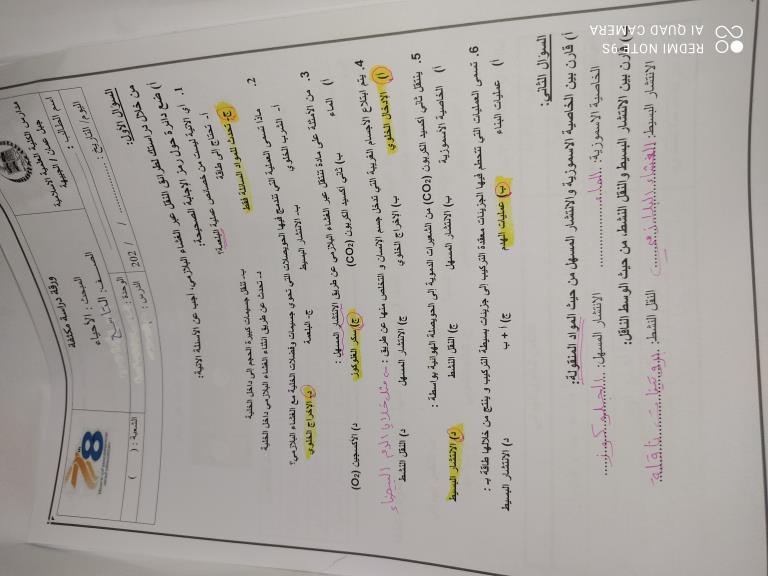 مدارس الكلية العلمية الإسلامية
جبل عمان / الجبيهة
ورقة دراسة مكثفة
اسم الطالب:
الصف: التاسع
المبحث: الأحياء
الشعبة: ( )
اليوم/ التاريخ: / / 202
الوحدة:
الدرس:
السؤال الأول:
من خلال دراستك لطرائق النقل عبر الغشاء البلازمي، أجب عن الأسئلة الآتية:
أ) ضع دائرة حول رمز الإجابة الصحيحة.
1. أي الآتية ليست من خصائص عملية البلعمة:
أ. تحتاج إلى طاقة
ب. تنقل جسيمات كبيرة الحجم إلى داخل الخلية
ج. تحدث للمواد السائلة فقط
د. تحدث عن طريق انثناء الغشاء البلازمي داخل الخلية
2. ماذا تسمى العملية التي تندمج فيها الحويصلات التي تحوي جسيمات وفضلات الخلية مع الغشاء البلازمي؟
أ. الشرب الخلوي
ب. الانتشار البسيط
ج. البلعمة
د. الإخراج الخلوي
3. من الأمثلة على مادة تنتقل عبر الغشاء البلازمي عن طريق الانتشار المسهل:
أ) الماء
ب) ثاني أكسيد الكربون (CO₂)
ج) سكر الغلوكوز
د) الأكسجين (O₂)
4. يتم ابتلاع الأجسام الغريبة التي تدخل جسم الإنسان و التخلص منها عن طريق : مثل خلايا الدم البيضاء
أ) الإدخال الخلوي
ب) الإخراج الخلوي
ج) الانتشار المسهل
د) النقل النشط
5. ينتقل ثاني أكسيد الكربون (CO₂) من الشعيرات الدموية إلى الحويصلة الهوائية بواسطة :
أ) الخاصية الأسموزية
ب) الانتشار المسهل
ج) النقل النشط
د) الانتشار البسيط
6. تسمى العمليات التي تتحطم فيها الجزيئات معقدة التركيب إلى جزيئات بسيطة التركيب و ينتج من خلالها طاقة ب :
أ) عمليات البناء
ب) عمليات الهدم
ج) أ + ب
د) الانتشار البسيط
السؤال الثاني:
أ) قارن بين الخاصية الاسموزية والانتشار المسهل من حيث المواد المنقولة:
الخاصية الاسموزية: الماء الانتشار المسهل: الجلوكوز
ب) قارن بين الانتشار البسيط والنقل النشط من حيث الوسط الناقل:
الانتشار البسيط: الغشاء البلازمي النقل النشط: بروتينات ناقلة
REDMI NOTE 9S
AI QUAD CAMERA